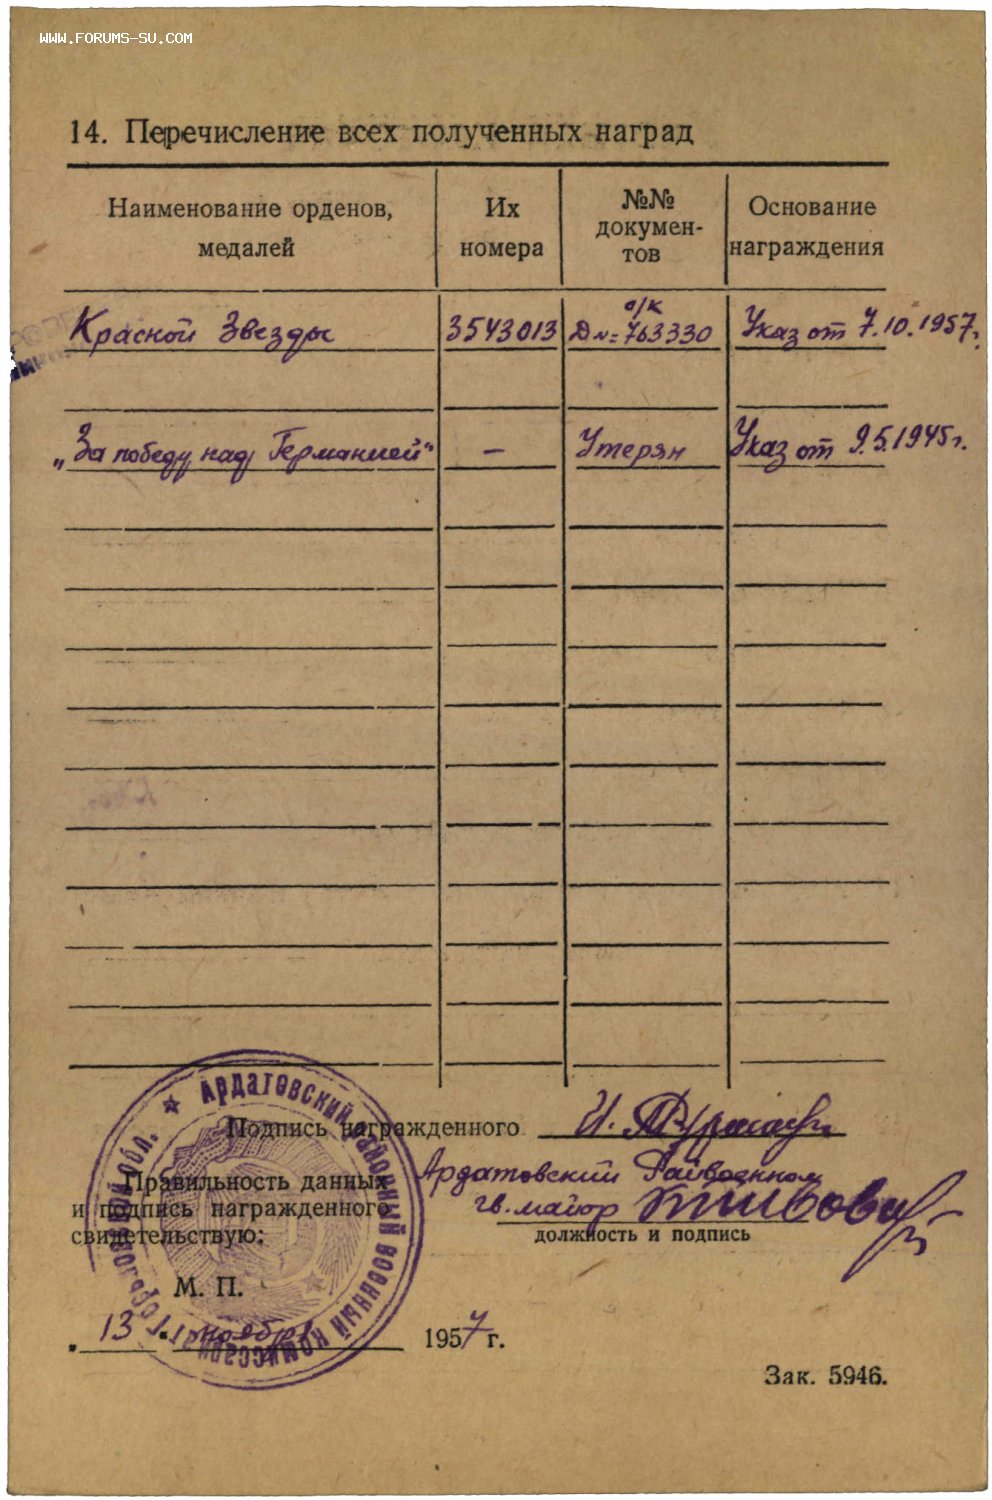 WWW.FORUMS-SU.COM
14. Перечисление всех полученных наград
Наименование орденов, медалей
Их номера
№№ докумен-тов
Основание награждения
о/к
Красной Звезды 3543013 Д№=763330 Указ от 7.10.1957г.
„За победу над Германией“ — Утерян Указ от 9.5.1945г.
Подпись награжденного И.
Правильность данных
и подпись награжденного
свидетельствую:
Ардатовский Райвоенком
гв. майор
должность и подпись
М. П.
„13“ ноября 1957 г.
Зак. 5946.
Ардатовский районный военный комиссариат Горьковской обл.